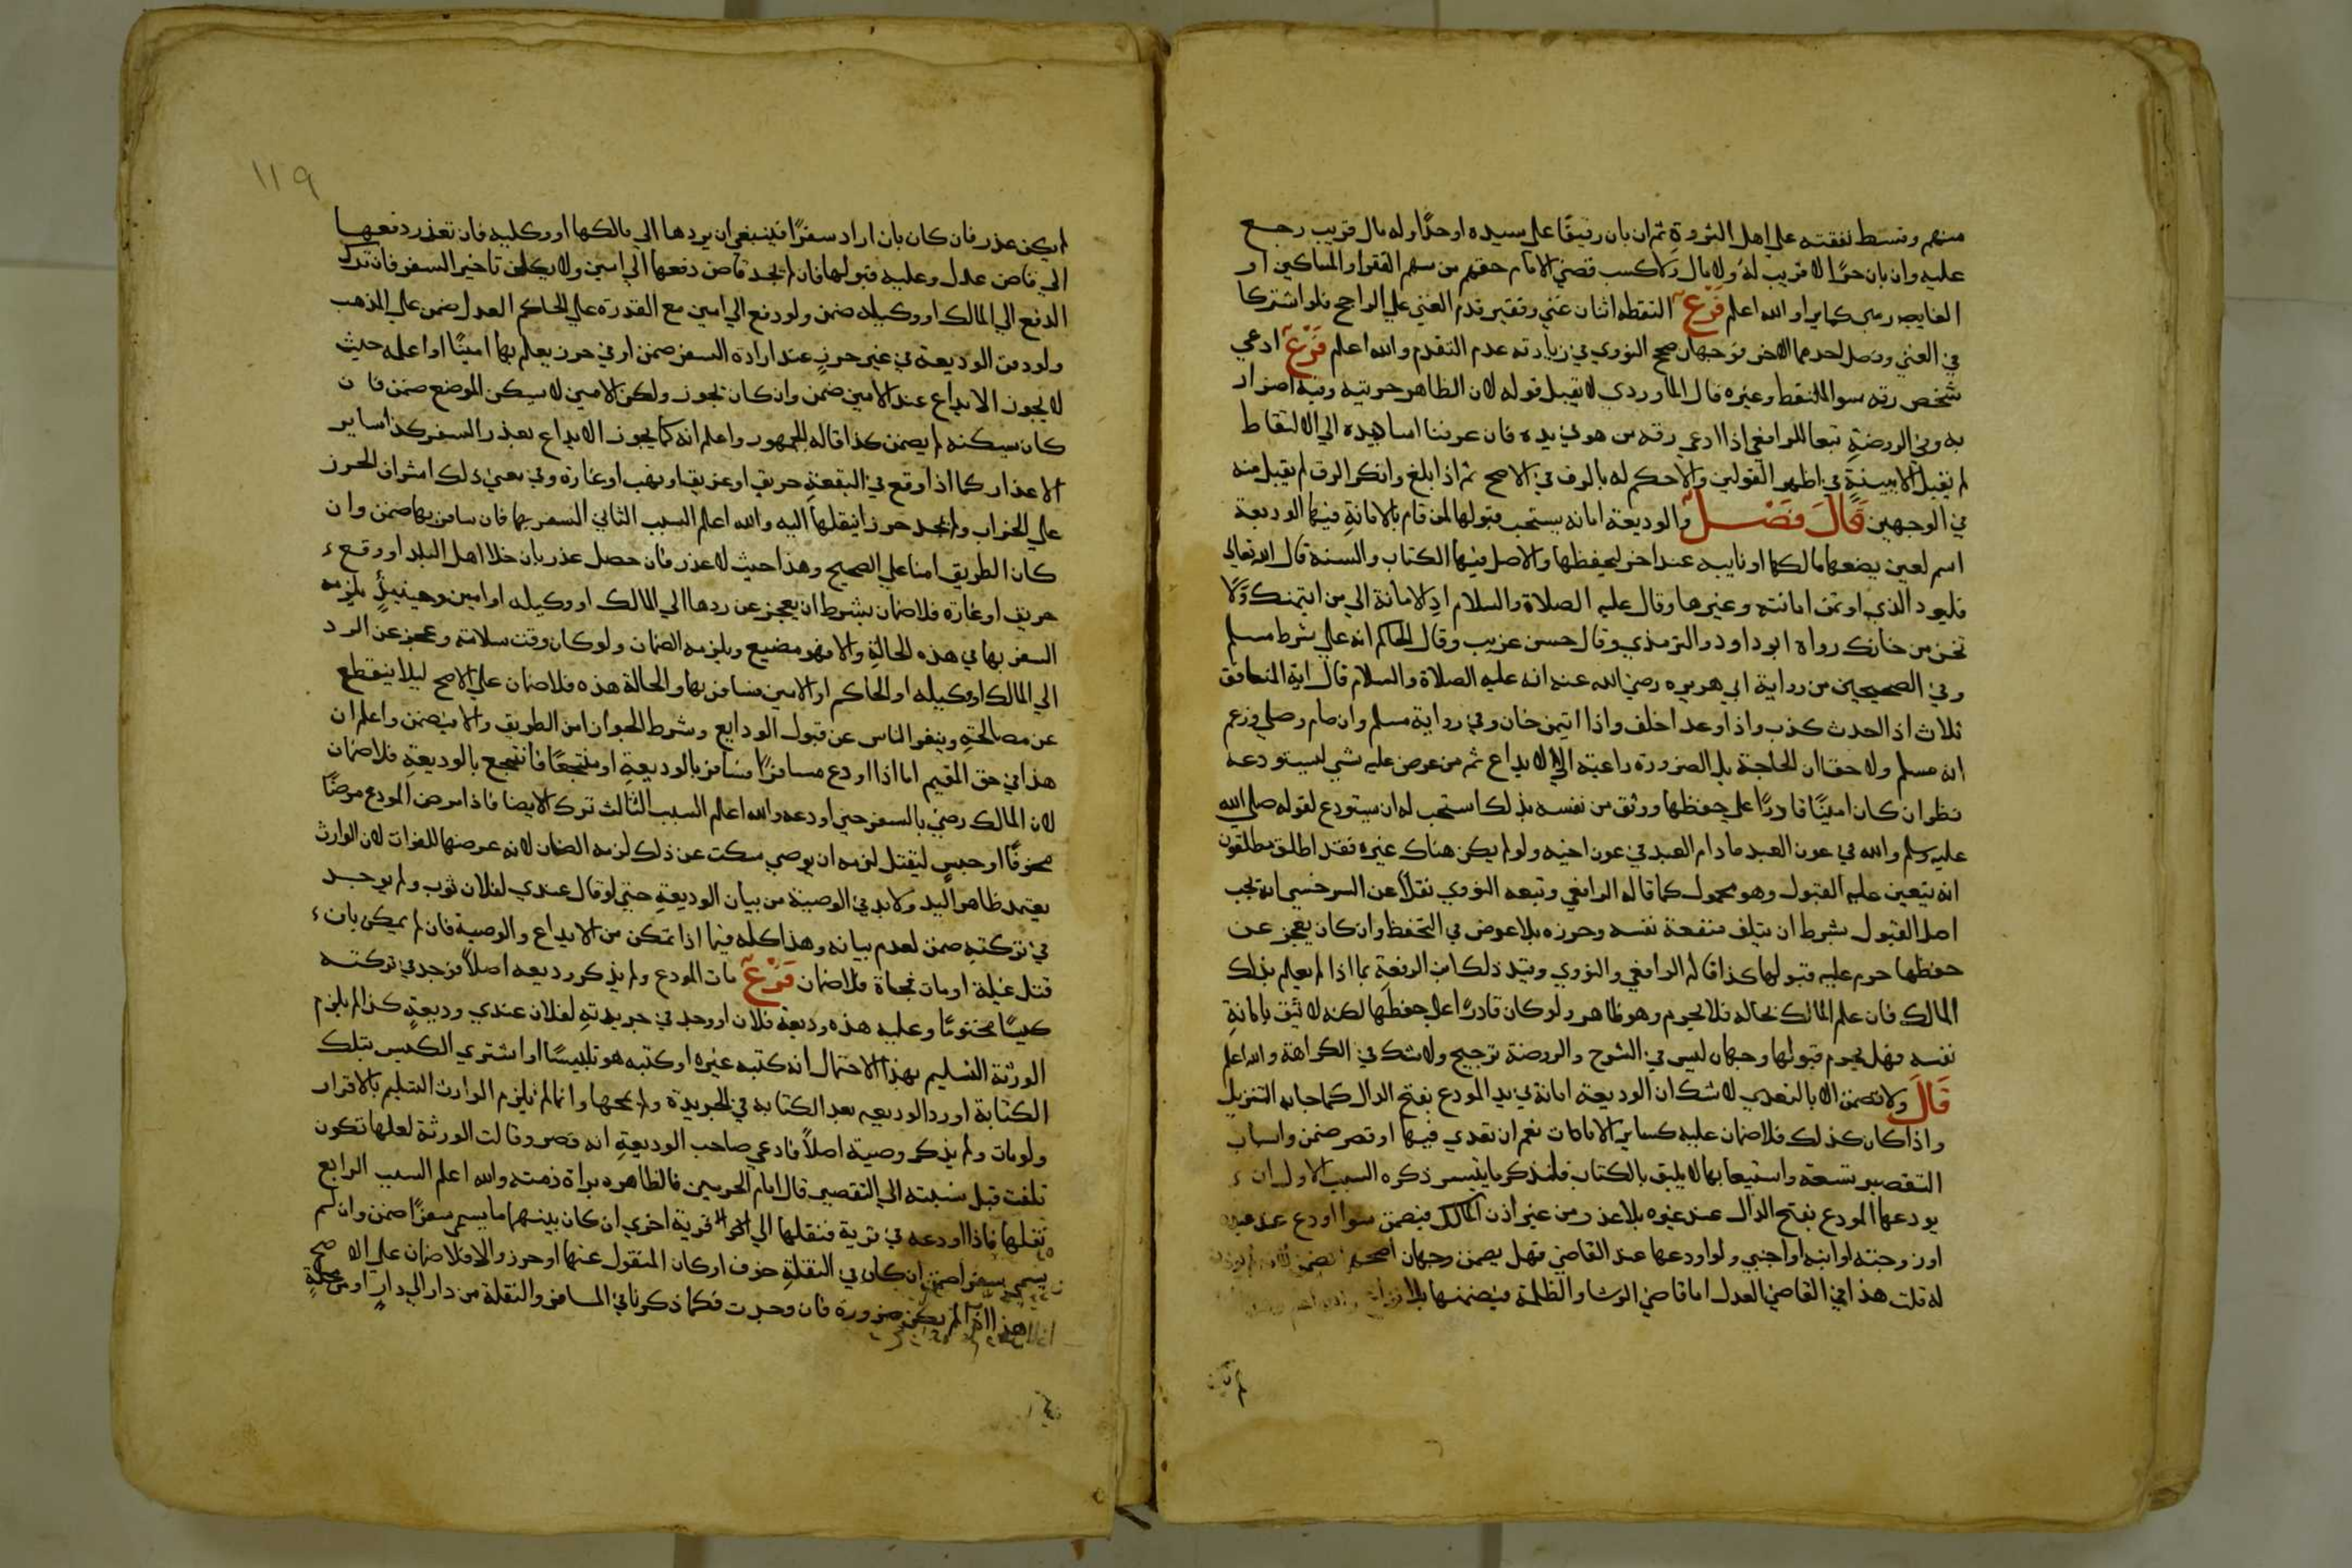 منهم وتسط نفقته على اهل الثروة ثم ان بان رقيقا على سيده او حرا وله مال قريب رجع
عليه وان بان حرا لا قريب له ولا مال ولا كسب قضى الامام حقهم من سهم الفقرا او المساكين او
الغارمين كما يرا والله اعلم فرع التقطه اثنان غني وفقير قدم الغني على الراجح فلو اشتركا
في الغني وفضل احدهما الاخر فوجهان صح النووي في زيادته عدم التقدم والله اعلم فرع ادعى
شخص رقه سوا الملتقط وغيره قال الماوردي لا يقبل قوله لان الظاهر حريته وفيه اضرار
به وفي الروضة تبعا للرافعي اذا ادعى رقه من هو في يده فان عرفنا اسا يده الى الالتقاط
لم تقبل الا ببينة في اظهر القولين والا حكم له بالرق في الاصح ثم اذا بلغ وانكر الرق لم يقبل منه
في الوجهين قال فصل والوديعة امانة يستحب قبولها لمن قام بالامانة فيها الوديعة
اسم لعين يضعها مالكها او نايبه عند اخر ليحفظها والاصل فيها الكتاب والسنة قال الله تعالى
فليود الذي اوتمن امانته وغيرها وقال عليه الصلاة والسلام اد الامانة الى من ايتمنك ولا
تخن من خانك رواه ابو داود والترمذي وقال حسن غريب وقال الحاكم انه على شرط مسلم
وفي الصحيحين من رواية ابي هريره رضي الله عنه انه عليه الصلاة والسلام قال اية المنافق
ثلاث اذا حدث كذب واذا وعد اخلف واذا ايتمن خان وفي رواية مسلم وان صام وصلى وزعم
انه مسلم ولا خفا ان الحاجة بل الضرورة داعية الى الايداع ثم من عرض عليه شي ليستودعه
نظر ان كان امينا قادرا على حفظها ووثق من نفسه بذلك استحب له ان يستودع لقوله صلى الله
عليه وسلم والله في عون العبد ما دام العبد في عون اخيه ولو لم يكن هناك غيره فقد اطلق مطلقون
انه يتعين عليه القبول وهو محمول كما قاله الرافعي وتبعه النووي نقلا عن السرخسي انه يجب
اصل القبول بشرط ان يتلف منفعة نفسه وحرزه بلا عوض في الحفظ وان كان يعجز عن
حفظها حرم عليه قبولها كذا قاله الرافعي والنووي وقيد ذلك ابن الرفعة بما اذا لم يعلم بذلك
المالك فان علم المالك بحاله فلا يحرم وهو ظاهر ولو كان قادرا على حفظها لكنه لا يثق بامانة
نفسه فهل يحرم قبولها وجهان ليس في الشرح والروضة ترجيح ولا شك في الكراهة والله اعلم
قال ولا تضمن الا بالتعدي لا شك ان الوديعة امانة في يد المودع بفتح الدال كما جا به التنزيل
واذا كان كذلك فلا ضمان عليه كساير الامانات نعم ان تعدي فيها او قصر ضمن واسباب
التقصير تسعة واستيعابها لا يليق بالكتاب فلنذكر ما يتيسر ذكره السبب الاول ان
يودعها المودع بفتح الدال عند غيره بلا عذر من غير اذن المالك فيضمن سوا اودع عند عبده
او زوجته او ابنه او اجنبي ولو اودعها عند القاضي فهل يضمن وجهان اصحهما يضمن
له قلت هذا في القاضي العدل اما قاضي الرشا والظلمة فيضمنها بلا
١١٩
لم يكن عذر فان كان بان اراد سفرا فينبغي ان يردها الى مالكها او وكليه فان تعذر دفعها
الى قاض عدل وعليه قبولها فان لم يجد قاض دفعها الى امين ولا يكلف تاخير السفر فان ترك
الدفع الى المالك او وكيله ضمن ولو دفع الى امين مع القدرة على الحاكم العدل ضمن على المذهب
ولو دفن الوديعة في غير حرز عند ارادة السفر ضمن او في حرز يعلم بها امينا او اعلمه حيث
لا يجوز الايداع عند الامين ضمن وان كان تجوز ولكن الامين لا يسكن الموضع ضمن فان
كان يسكنه لم يضمن كذا قاله الجمهور واعلم انه كما يجوز الايداع بعذر السفر كذا ساير
الاعذار كما اذا وقع في البقعة حريق او غريق او نهب او غارة وفي معنى ذلك اشراف الحرز
على الخراب ولم يجد حرزا ينقلها اليه والله اعلم السبب الثاني السفر بها فان سافر بها ضمن وان
كان الطريق امنا على الصحيح وهذا حيث لا عذر فان حصل عذر بان خلا اهل البلد او وقع
حريق او غارة فلا ضمان بشرط ان يعجز عن ردها الى المالك او وكيله او امين وحينيذ يلزمه
السفر بها في هذه الحالة والا فهو مضيع ويلزمه الضمان ولو كان وقت سلامة وعجز عن الرد
الى المالك او وكيله او الحاكم او الامين فسافر بها والحالة هذه فلا ضمان على الاصح ليلا ينقطع
عن مصالحه وينفر الناس عن قبول الودايع وشرط الجواز امن الطريق والا يضمن واعلم ان
هذا في حق المقيم اما اذا اودع مسافرا فسافر بالوديعة او منتجعا فانتجع بالوديعة فلا ضمان
لان المالك رضي بالسفر حين اودعه والله اعلم السبب الثالث ترك الايصا فاذا مرض المودع مرضا
مخوفا او حبس ليقتل لزمه ان يوصي سكت عن ذلك لزمه الضمان لانه عرضها للفوات لان الوارث
يعتمد ظاهر اليد ولا بد في الوصية من بيان الوديعة حتى لو قال عندي لفلان ثوب ولم يوجد
في تركته ضمن لعدم بيانه وهذا كله فيما اذا تمكن من الايداع والوصية فان لم يمكن بان
قتل غيلة او مات فجاة فلا ضمان فرع مات المودع ولم يذكر وديعه اصلا فوجد في تركته
كيسا مختوما وعليه هذه وديعة فلان او وجد في جريدته لفلان عندي وديعة كذا لم يلزم
الورثة التسليم بهذا الاحتمال انه كتبه غيره او كتبه هو تلبيسا او اشترى الكيس بتلك
الكتابة او رد الوديعه بعد الكتابة في الجريدة ولم يمحها وانما لم يلزم الوارث التسليم بالاقرار
ولو مات ولم يذكر وصية اصلا فادعى صاحب الوديعة انه قصر وقالت الورثة لعلها تكون
تلفت قبل نسبته الى التقصير قال امام الحرمين فالظاهر براة ذمته والله اعلم السبب الرابع
نقلها فاذا اودعه في قرية فنقلها الى قرية اخرى ان كان بينهما ما يسمى سفرا ضمن وان لم
يسمى سفرا ضمن ان كان في النقلة خوف او كان المنقول عنها او حرز والا فلا ضمان على الاصح
هذا اذا لم يكن ضرورة فان وجدت فكما ذكرنا في المسافر والنقلة من دار الى دار او من محلة